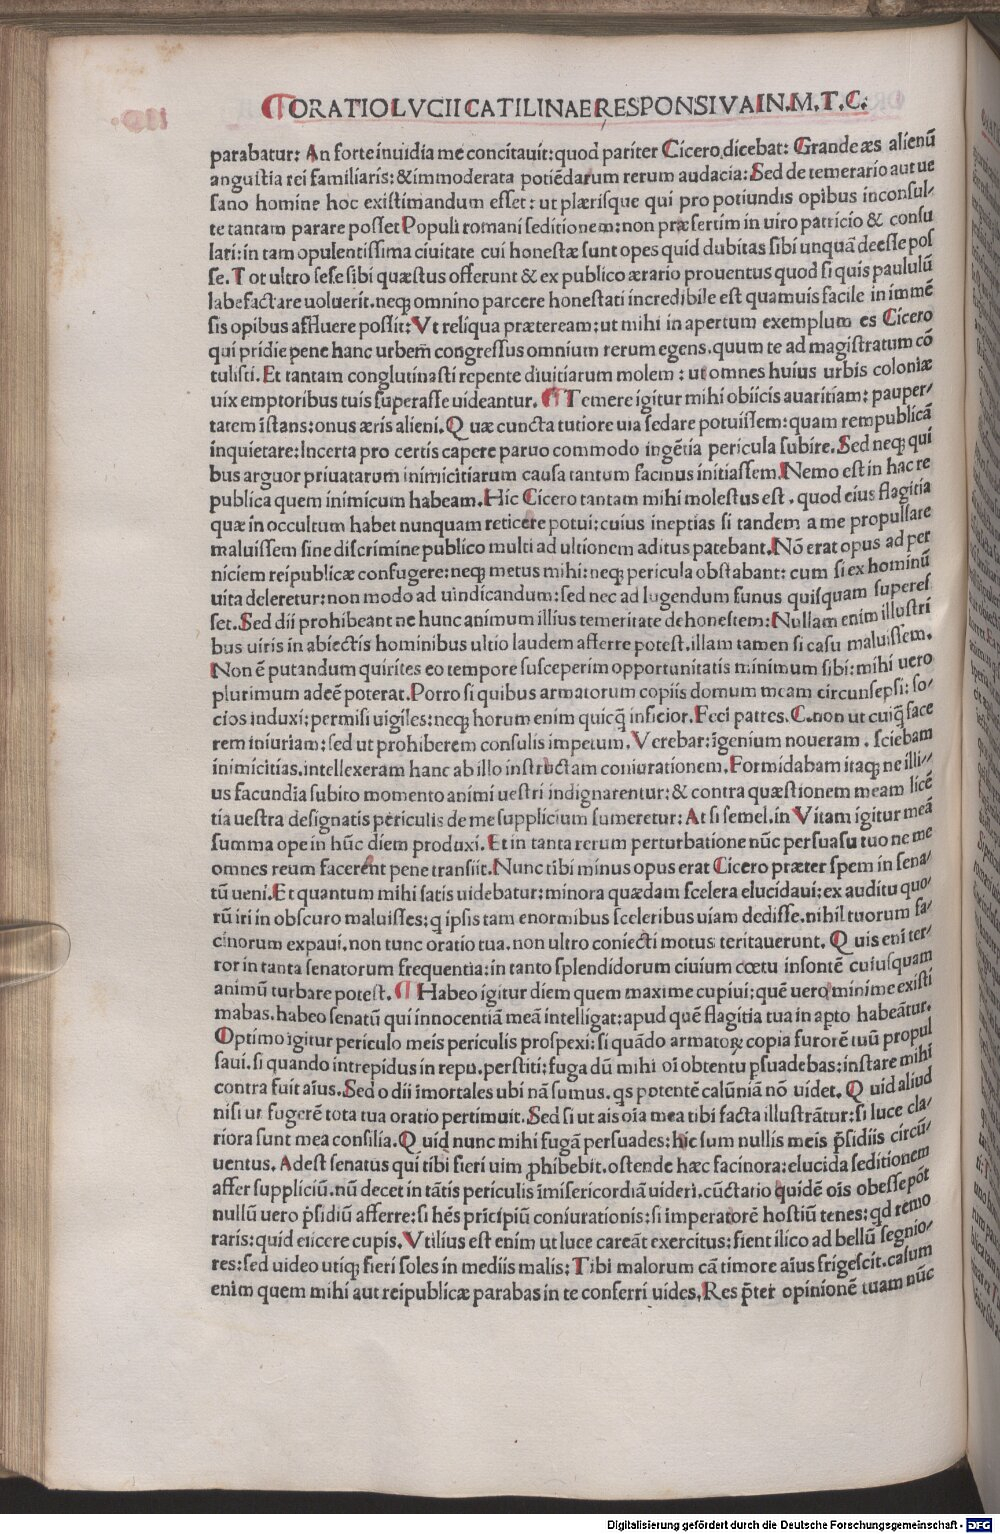 ORATIO LVCII CATILINAE RESPONSIVA IN.M.T.C.
parabatur: An forte inuidia me concitauit: quod pariter Cicero dicebat: Grande æs alienũ
angustia rei familiaris: & immoderata potiẽdarum rerum audacia: Sed de temerario aut ue
sano homine hoc existimandum esset: ut plærisque qui pro potiundis opibus inconsul-
te tantam parare posset Populi romani seditionem: non præsertim in uiro patricio & consu
lari: in tam opulentissima ciuitate cui honestæ sunt opes quid dubitas sibi unquã deesse pos
se. Tot ultro sese sibi quæstus offerunt & ex publico ærario prouentus quod si quis paululũ
labefactare uoluerit. neq; omnino parcere honestati incredibile est quamuis facile in immẽ
sis opibus affluere possit: Vt reliqua præteream: ut mihi in apertum exemplum es Cicero
qui pridie pene hanc urbem̃ congressus omnium rerum egens. quum te ad magistratum cõ
tulisti. Et tantam conglutinasti repente diuitiarum molem: ut omnes huius urbis coloniæ
uix emptoribus tuis superasse uideantur. ¶ Temere igitur mihi obiicis auaritiam: pauper-
tatem ĩstans: onus æris alieni. Quæ cuncta tutiore uia sedare potuissem: quam rempublicã
inquietare: Incerta pro certis capere paruo commodo ingẽtia pericula subire. Sed neq; qui
bus arguor priuatarum inimicitiarum causa tantum facinus initiassem. Nemo est in hac re
publica quem inimicum habeam. Hic Cicero tantam mihi molestus est. quod eius flagitia
quæ in occultum habet nunquam reticere potui: cuius ineptias si tandem a me propulsare
maluissem sine discrimine publico multi ad ultionem aditus patebant. Nõ erat opus ad per
niciem reipublicæ confugere: neq; metus mihi: neq; pericula obstabant: cum si ex hominũ
uita deleretur: non modo ad uindicandum: sed nec ad lugendum funus quisquam superes
set. Sed dii prohibeant ne hunc animum illius temeritate dehonestem: Nullam enim illustri
bus uiris in abiectis hominibus ultio laudem afferre potest. illam tamen si casu maluissem.
Non ẽ putandum quirites eo tempore susceperim opportunitatis minimum sibi: mihi uero
plurimum adeẽ poterat. Porro si quibus armatorum copiis domum meam circunsepsi: so-
cios induxi: permisi uigiles: neq; horum enim quicq̃ inficior. Feci patres. C. non ut cuiq̃ face
rem iniuriam: sed ut prohiberem consulis impetum. Verebar: ĩgenium noueram. sciebam
inimicitias. intellexeram hanc ab illo instructam coniurationem. Formidabam itaq; ne illi-
us facundia subito momento animi uestri indignarentur: & contra quæstionem meam licẽ
tia uestra designatis periculis de me supplicium sumeretur: At si semel. in Vitam igitur meã
summa ope in hũc diem produxi. Et in tanta rerum perturbatione nũc persuasu tuo ne me
omnes reum facerent pene transiit. Nunc tibi minus opus erat Cicero præter spem in sena-
tũ ueni. Et quantum mihi satis uidebatur: minora quædam scelera elucidaui: ex auditu quo-
rũ iri in obscuro maluisses: q ipsis tam enormibus sceleribus uiam dedisse. nihil tuorum fa-
cinorum expaui. non tunc oratio tua. non ultro coniecti motus teritauerunt. Quis eni ter-
ror in tanta senatorum frequentia: in tanto splendidorum ciuium cœtu insontẽ cuiusquam
animũ turbare potest. ¶ Habeo igitur diem quem maxime cupiui: quẽ uero minime existi
mabas. habeo senatũ qui innocentiã meã intelligat: apud quẽ flagitia tua in apto habeãtur.
Optimo igitur periculo meis periculis prospexi: si quãdo armatoꝝ copia furorẽ tuũ propul
saui. si quando intrepidus in repu. perstiti: fuga dũ mihi oĩ obtentu ꝑsuadebas: instare mihi
contra fuit aĩus. Sed o dii ĩmortales ubi nã sumus. qs potentẽ calũniã nõ uidet. Quid aliud
nisi ut fugerẽ tota tua oratio pertimuit. Sed si ut ais oĩa mea tibi facta illustrãtur: si luce cla-
riora sunt mea consilia. Quid nunc mihi fugã persuades: hic sum nullis meis p̃sidiis circũ-
uentus. Adest senatus qui tibi fieri uim ꝓhibebit. ostende hæc facinora: elucida seditionem
affer suppliciũ. nũ decet in tãtis periculis ĩmisericordiã uideri. cũctatio quidẽ oĩs obesse põt
nullũ uero p̃sidiũ afferre: si hẽs pricipiũ coniurationis: si imperatorẽ hostiũ tenes: qd remo
raris: quid eiicere cupis. Vtilius est enim ut luce careãt exercitus: fient ilico ad bellũ segnio-
res: sed uideo utiq; fieri soles in mediis malis: Tibi malorum cã timore aĩus frigescit. casum
enim quem mihi aut reipublicæ parabas in te conferri uides. Res p̃ter opinionẽ tuam nũc
Digitalisierung gefördert durch die Deutsche Forschungsgemeinschaft - DFG